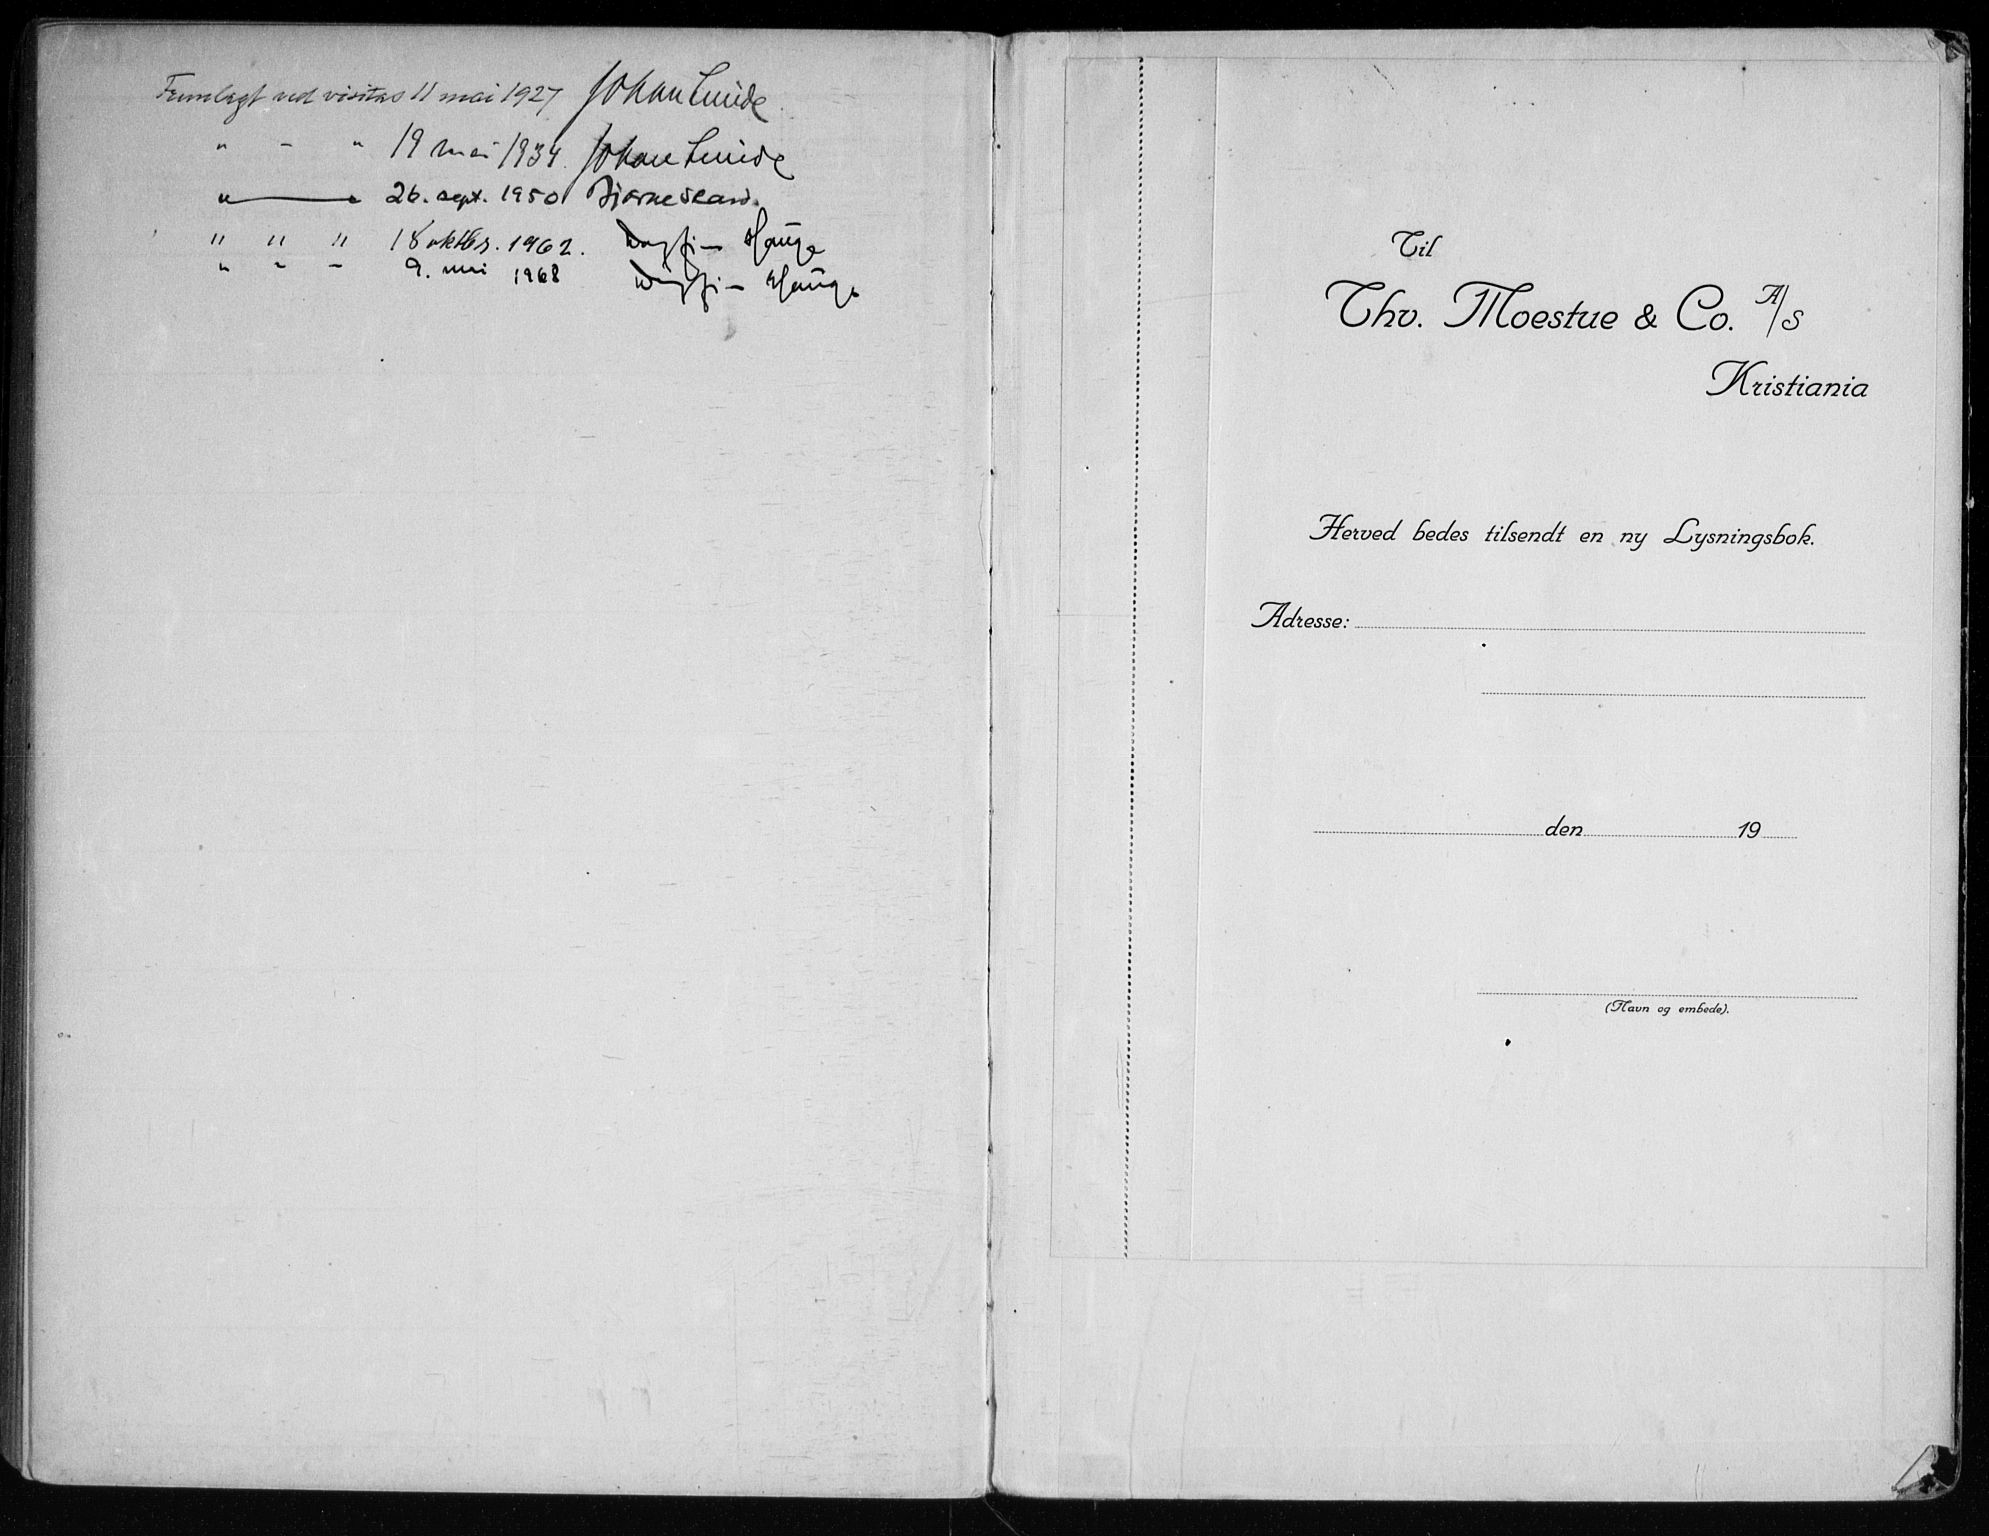 Fremlagt ved visitas 11 mai 1927 Johan Lunde
" - " 19 mai 1934. Johan Lunde
" " 26. sept. 1950 Bjarne Skard.
" " " 18 oktbr. 1962. Dagfinn Hauge
" - - 9. mai 1968 Dagfinn Hauge
Til
Thv. Moestue & Co. A/S
Kristiania
Herved bedes tilsendt en ny Lysningsbok.
Adresse:
den 19
(Navn og embede).